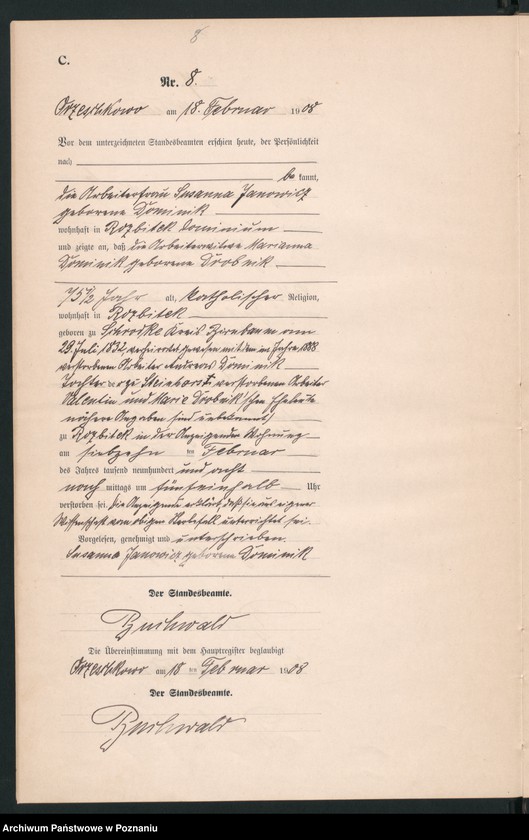 8
C.
Nr. 8.
Orzeschkowo am 18. Februar 1908
Vor dem unterzeichneten Standesbeamten erschien heute, der Persönlichkeit
nach
be kannt,
die Arbeiterfrau Susanna Janowicz
geborene Dominik
wohnhaft in Rozbitek Dominium
und zeigte an, daß die Arbeiterwitwe Marianna
Dominik geborene Drobnik
75 1/2 Jahr alt, katholischer Religion,
wohnhaft in Rozbitek
geboren zu Kreis Birnbaum am
23. Juli 1832, verheiratet gewesen mit dem im Jahre 1888
verstorbenen Arbeiter Andreas Dominik
Tochter der zu verstorbenen Arbeiter
Valentin und Marie Drobnik'schen Eheleute
nähere Angaben sind unbekannt,
zu Rozbitek in der Anzeigenden Wohnung
am siebzehn ten Februar
des Jahres tausend neunhundert und acht
nach mittags um fünfeinhalb Uhr
verstorben sei. Die Anzeigende erklärt, daß sie aus eigener
Wissenschaft vom obigen Sterbefall unterrichtet sei.
Vorgelesen, genehmigt und unterschrieben.
Susanna Janowicz geborene Dominik
Der Standesbeamte.
Buchwald
Die Übereinstimmung mit dem Hauptregister beglaubigt
Orzeschkowo am 18 ten Februar 1908
Der Standesbeamte.
Buchwald
Archiwum Państwowe w Poznaniu